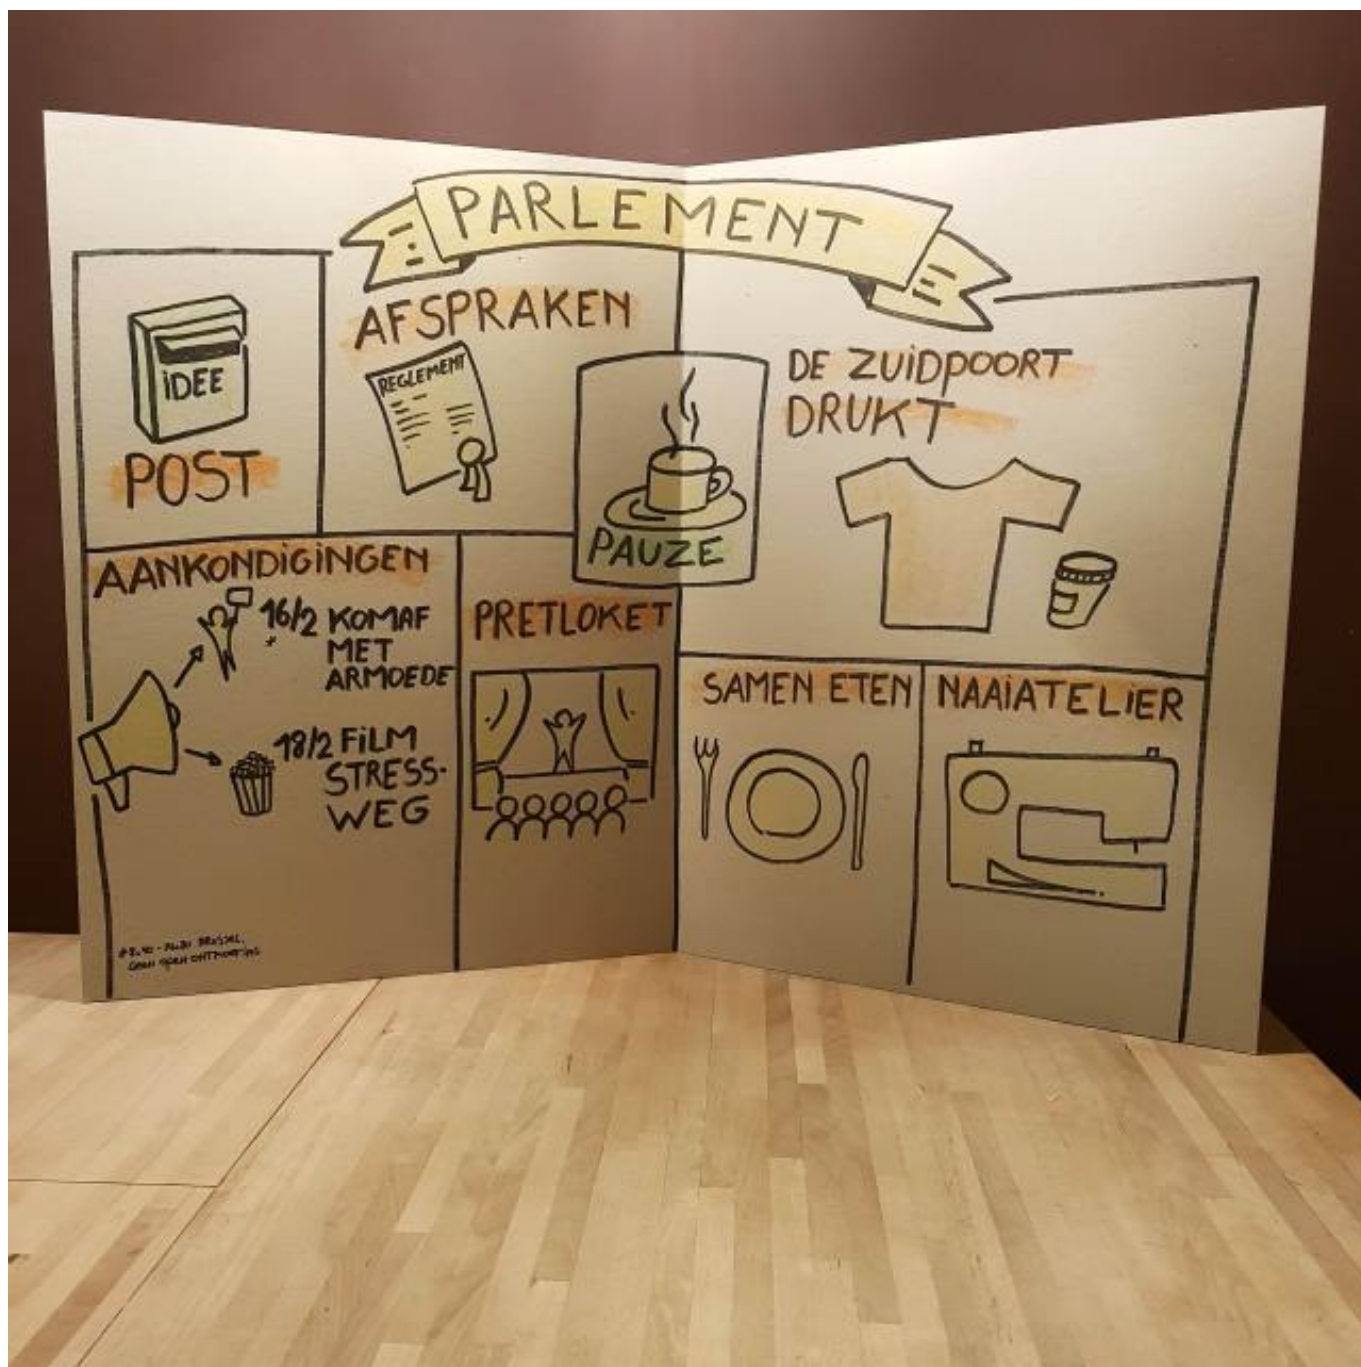 PARLEMENT
iDEE
POST
AFSPRAKEN
REGLEMENT
PAUZE
DE ZUiDPOORT
DRUKT
AANKONDiGiNGEN
16/2 KOMAF
*
MET
ARMOEDE
18/2 FiLM
STRESS-
WEG
BRUSSEL
PRETLOKET
SAMEN ETEN
NAAiATELiER